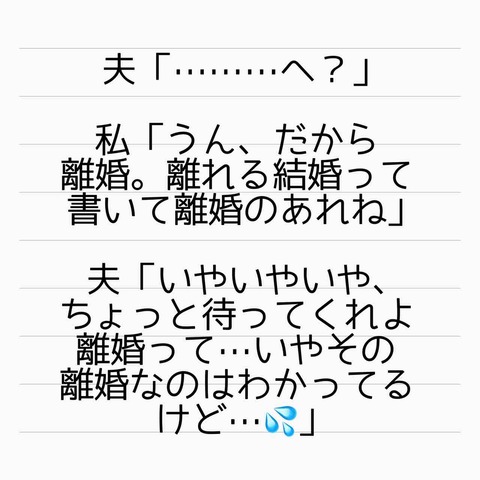 夫「………へ？」
私「うん、だから
離婚。離れる結婚って
書いて離婚のあれね」
夫「いやいやいや、
ちょっと待ってくれよ
離婚って…いやその
離婚なのはわかってる
けど…💦」